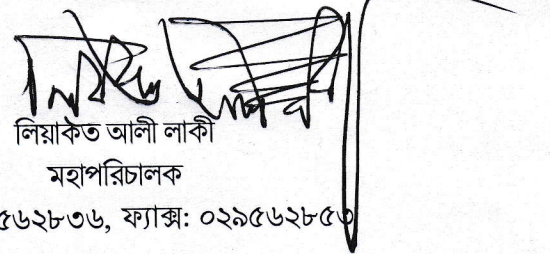 লিয়াকত আলী লাকী
মহাপরিচালক
৫৬২৮৩৬, ফ্যাক্স: ০২৯৫৬২৮৫৩